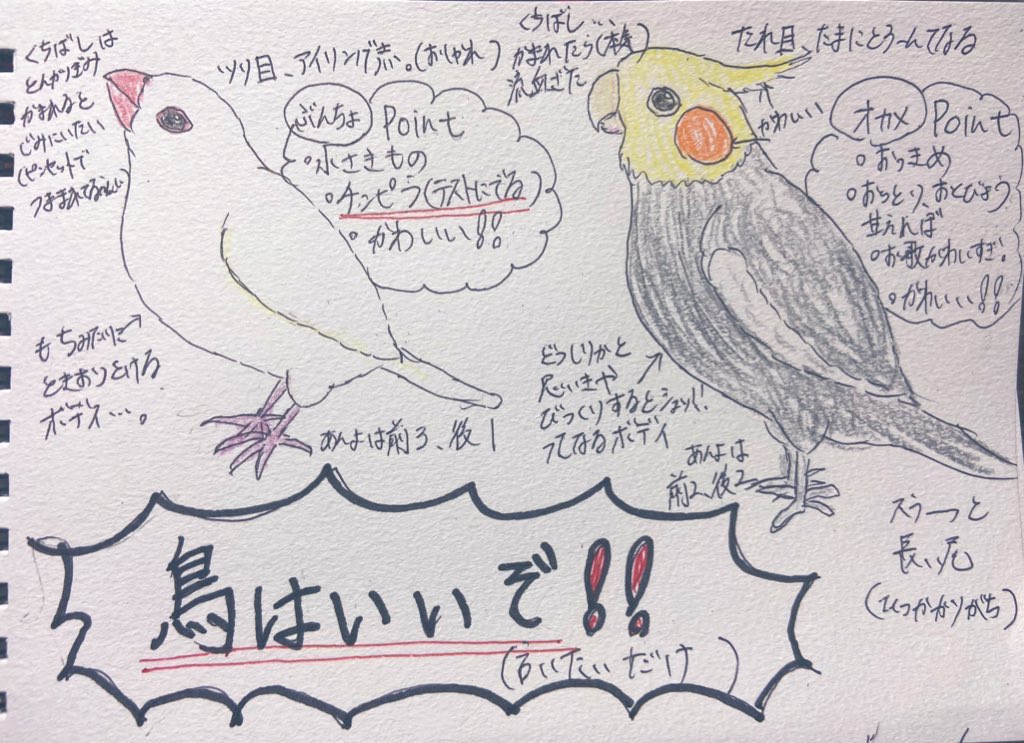 くちばしは
とんがりぎみ
かまれると
じみにいたい
(ピンセットで
つままれてるかんじ)
ツリ目、アイリング赤。(おしゃれ)
ぶんちょ Point
・小さきもの
・チンピラ(テストにでる)
・かわいい!!
もちみたいに
ときおりとける
ボディ…。
あんよは前3、後1
くちばし…
かまれたら(本気)
流血ざた
たれ目、たまにとろーんてなる
かわいい
オカメ Point
・おっきめ
・おっとり、おくびょう
甘えんぼ
・お歌かわいすぎ!
・かわいい!!
どっしりかと
思いきや
びっくりするとシュッ!
ってなるボディ
あんよは
前2、後2
スラーっと
長い尾
(ひっかかりがち)
鳥はいいぞ!!
(言いたいだけ)